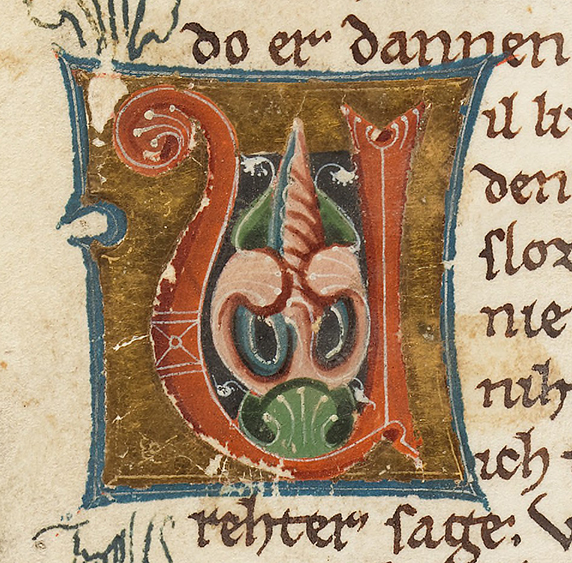 do er dannen
U
il
den
nie
nih
ich
rehter sage. V